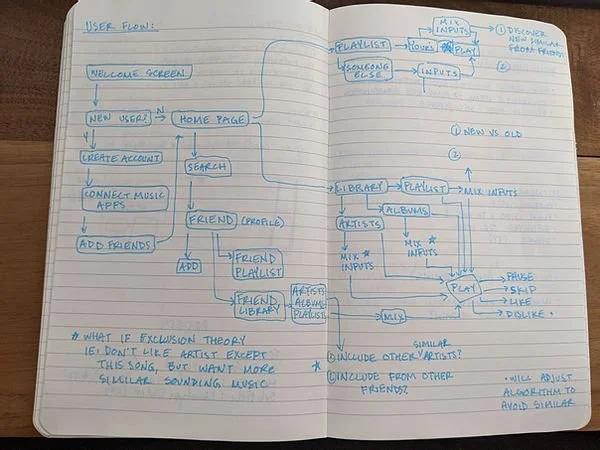 USER FLOW:
WELCOME SCREEN
NEW USER?
N
HOME PAGE
Y
CREATE ACCOUNT
SEARCH
CONNECT MUSIC
APPS
FRIEND
(PROFILE)
ADD FRIENDS
ADD
FRIEND
PLAYLIST
FRIEND
LIBRARY
ARTISTS
ALBUMS
PLAYLIST
* WHAT IF EXCLUSION THEORY
IE: DON'T LIKE ARTIST EXCEPT
THIS SONG, BUT WANT MORE
SIMILAR SOUNDING MUSIC
MIX
INPUTS
PLAYLIST
YOURS
PLAY
① DISCOVER
NEW SIMILAR
FROM FRIENDS
SOMEONE
ELSE
INPUTS
②
① NEW VS OLD
②
LIBRARY
PLAYLIST
MIX INPUTS
ALBUMS
ARTISTS
MIX *
INPUTS
MIX *
INPUTS
PLAY
PAUSE
SKIP
LIKE
DISLIKE •
MIX
*
SIMILAR
① INCLUDE OTHER ARTISTS?
② INCLUDE FROM OTHER
FRIENDS?
• WILL ADJUST
ALGORITHM TO
AVOID SIMILAR